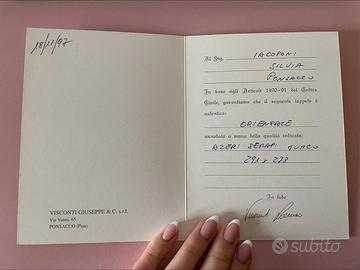 18/11/97
VISCONTI GIUSEPPE & C. s.r.l.
Via Vanni, 65
PONSACCO (Pisa)
Al Sig. IACOPONI
SILVIA
PONSACCO
In base agli Articoli 1490-91 del Codice
Civile, garantiamo che il seguente tappeto è
autentico:
ORIENTALE
annodato a mano della qualità indicata:
AZERI SERAPI TURCO
291 x 228
In fede
subito